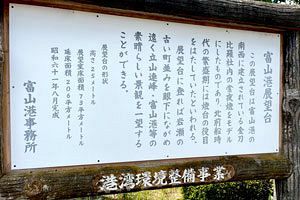 富山港展望台
この展望台は富山港の
南西に建立されている金刀
比羅社内の常夜燈をモデル
にしたものであり、北前船時
代の繁盛期には燈台の役目
をはたしていたといわれる。
展望台に登れば岩瀬の
古い町並みを眼下にながめ
遠く立山連峰・富山港等の
素晴らしい景観を一望する
ことができる。
展望台の形状
高さ25メートル
展望室床面積73平方メートル
延床面積206平方メートル
昭和六十一年八月完成
富山港事務所
港湾環境整備事業